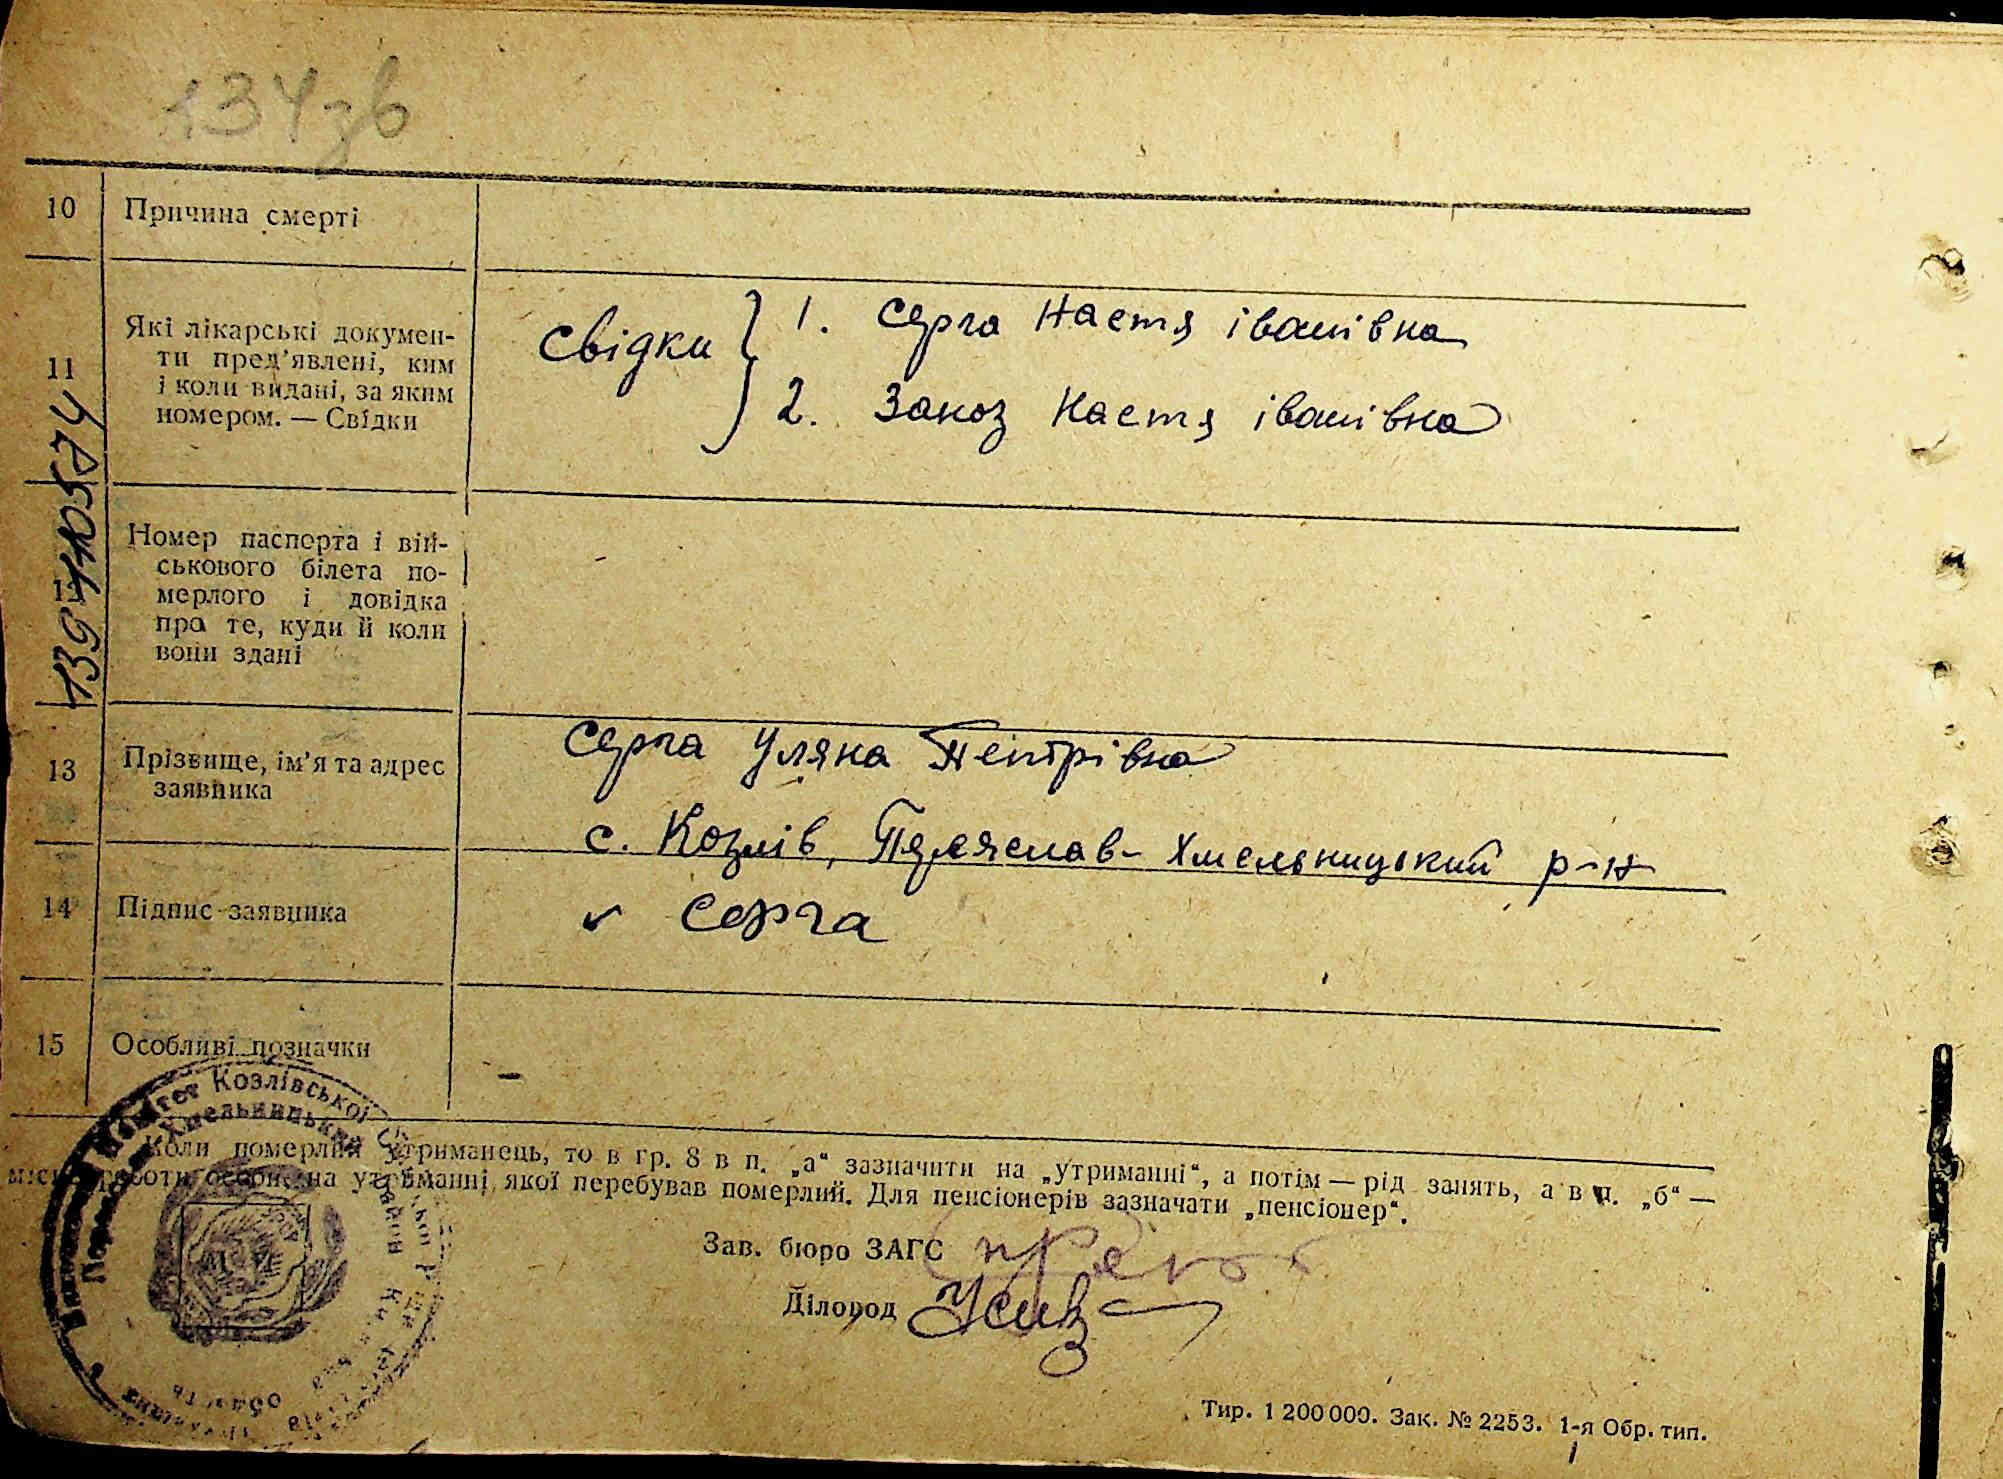 134зв
10 Причина смерті
11 Які лікарські докумен-
ти пред'явлені, ким
і коли видані, за яким
номером. — Свідки
Свідки } 1. Серга Настя іванівна
2. Закоз Настя іванівна
Номер паспорта і вій-
ськового білета по-
мерлого і довідка
про те, куди й коли
вони здані
13 Прізвище, ім'я та адрес
заявника
Серга Уляна Петрівна
с. Козлів, Переяслав-Хмельницький р-н
14 Підпис заявника
✓ Серга
15 Особливі позначки
–
Коли померлий утриманець, то в гр. 8 в п. „а“ зазначити на „утриманні“, а потім — рід занять, а в п. „б“ —
місце роботи особи, на утриманні якої перебував померлий. Для пенсіонерів зазначати „пенсіонер“.
Зав. бюро ЗАГС
Діловод
Комітет Козлівської
Хмельницький
область
Тир. 1 200 000. Зак. № 2253. 1-я Обр. тип.